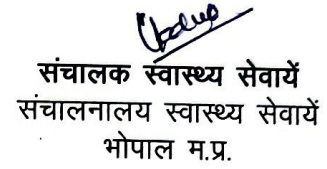 संचालक स्वास्थ्य सेवायें
संचालनालय स्वास्थ्य सेवायें
भोपाल म.प्र.